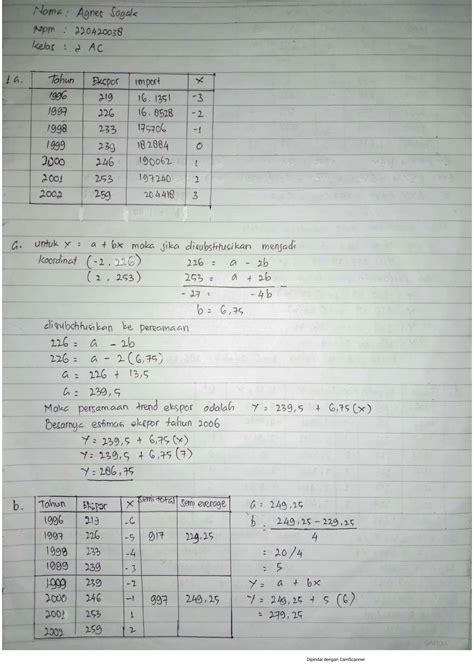 Nama : Agnes Sagala
Npm : 220420038
Kelas : 2 AC
1a. Tahun Ekspor import X
1996 219 16.1351 -3
1997 226 16.8528 -2
1998 233 175706 -1
1999 239 182884 0
2000 246 190062 1
2001 253 197240 2
2002 259 204418 3
a. untuk Y = a + bx maka jika disubstitusikan menjadi
koordinat (-2, 226) 226 = a - 2b
(2, 253) 253 = a + 2b
-27 = -4b
b = 6,75
disubstitusikan ke persamaan
226 = a - 2b
226 = a - 2(6,75)
a = 226 + 13,5
a = 239,5
Maka persamaan trend ekspor adalah Y = 239,5 + 6,75(x)
Besarnya estimasi ekspor tahun 2006
Y = 239,5 + 6,75(x)
Y = 239,5 + 6,75(7)
Y = 286,75
b. Tahun Ekspor X Semi total Semi average a = 249,25
1996 219 -6 b = 249,25 - 229,25
1997 226 -5 917 229.25 4
1998 233 -4 = 20/4
1999 239 -3 = 5
1999 239 -2 Y = a + bx
2000 246 -1 997 249,25 Y = 249,25 + 5 (6)
2001 253 1 = 279,25
2002 259 2
Dipindai dengan CamScanner